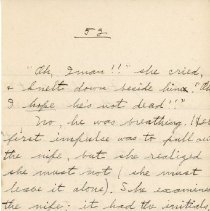 52
"Oh, Iman!!" she cried,
& knelt down beside him. "Oh
I hope he's not dead!!"
No, he was breathing. Her
first impulse was to pull out
the nife, but she realized
she must not (she must
leave it alone). She examined
the nife: it had the initials